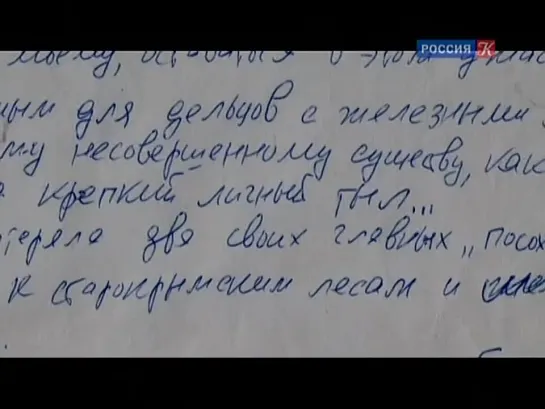 РОССИЯ К
моему,
ным для дельцов с железными
му несовершенному существу, как
крепкий личный тыл...
теряла два своих главных „посох
к старокрымским лесам и